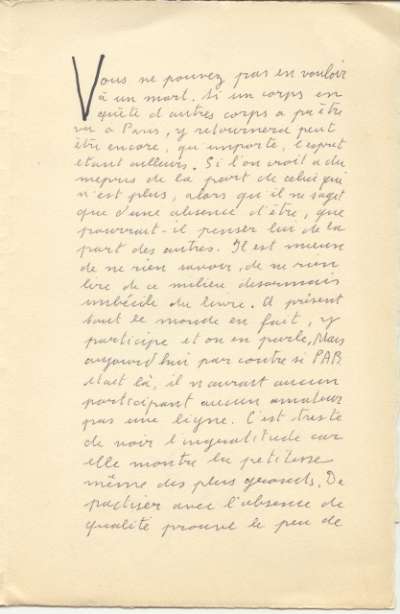 Vous ne pouvez pas en vouloir
à un mort. Si un corps en
quête d'autres corps a pu être
vu à Paris, y retournera peut
être encore, qu'importe, l'esprit
étant ailleurs. Si l'on croit à du
mépris de la part de celui qui
n'est plus, alors qu'il ne s'agit
que d'une absence d'être, que
pourrait-il penser lui de la
part des autres. Il est mieux
de ne rien savoir, de ne rien
lire de ce milieu désormais
imbécile du livre. A présent
tout le monde en fait, y
participe et on en parle, Mais
aujourd'hui par contre si PAB
était là, il n'aurait aucun
participant aucun amateur
pas une ligne. C'est triste
de voir l'ingratitude car
elle montre la petitesse
même des plus grands. De
pactiser avec l'absence de
qualité prouve le peu de